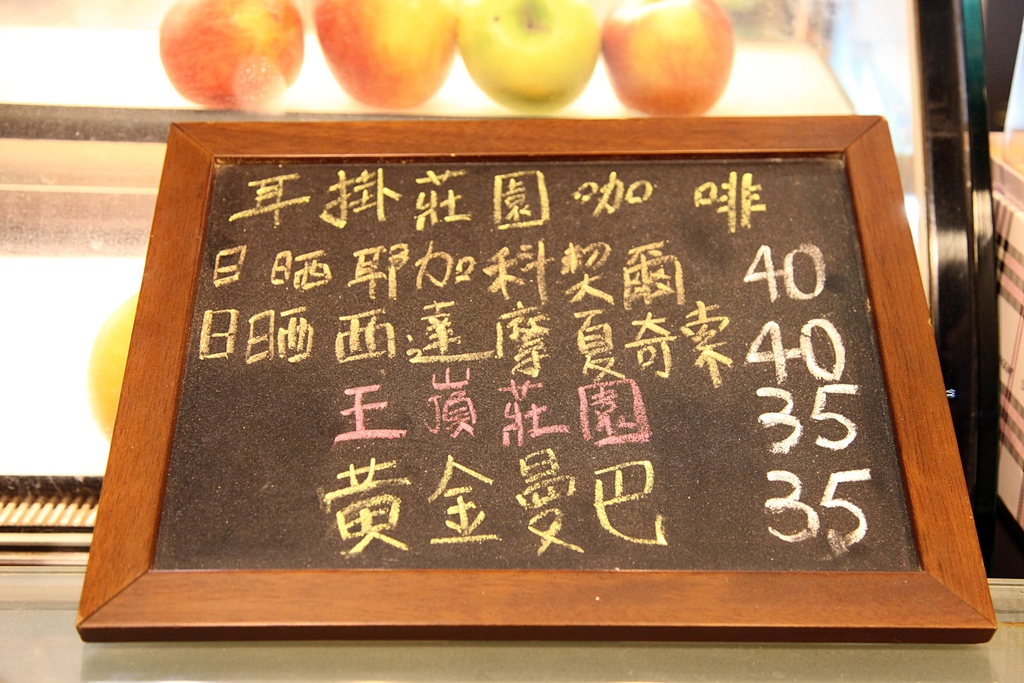 耳掛莊園咖啡
日晒耶加科契爾 40
日晒西達摩夏奇索 40
王嵿莊園 35
黃金曼巴 35